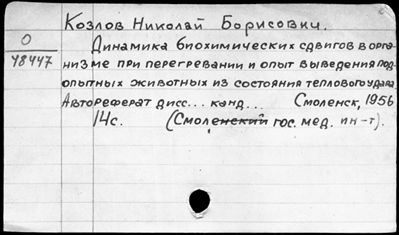 Козлов Николай Борисович.
О
48447
Динамика биохимических сдвигов в орга-
низме при перегревании и опыт выведения под-
опытных животных из состояния теплового удара
Автореферат дисс... канд... Смоленск, 1956
14с. (Смоленский гос. мед. ин-т).